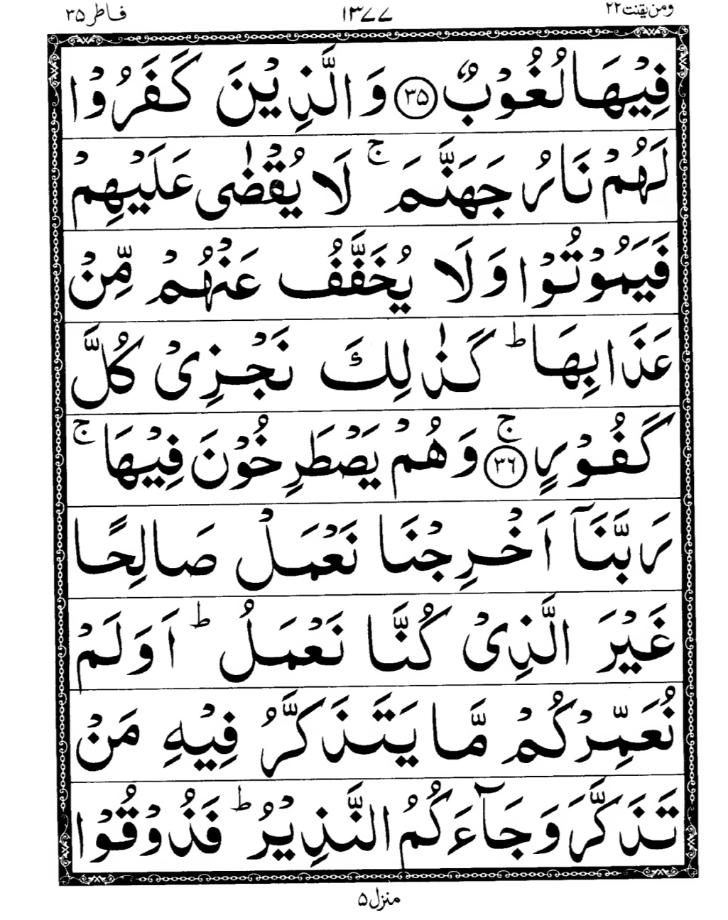 ومن یقنت ۲۲ ۱۳۷۷ فاطر ۳۵
فِيْهَا لُغُوْبٌ ﴿۳۵﴾ وَالَّذِيْنَ كَفَرُوْا
لَهُمْ نَارُ جَهَنَّمَ ۚ لَا يُقْضٰى عَلَيْهِمْ
فَيَمُوْتُوْا وَلَا يُخَفَّفُ عَنْهُمْ مِّنْ
عَذَابِهَا ؕ كَذٰلِكَ نَجْزِيْ كُلَّ
كَفُوْرٍ ۚ﴿۳۶﴾ وَهُمْ يَصْطَرِخُوْنَ فِيْهَا ۚ
رَبَّنَاۤ اَخْرِجْنَا نَعْمَلْ صَالِحًا
غَيْرَ الَّذِيْ كُنَّا نَعْمَلُ ؕ اَوَلَمْ
نُعَمِّرْكُمْ مَّا يَتَذَكَّرُ فِيْهِ مَنْ
تَذَكَّرَ وَجَآءَكُمُ النَّذِيْرُ ؕ فَذُوْقُوْا
منزل ۵